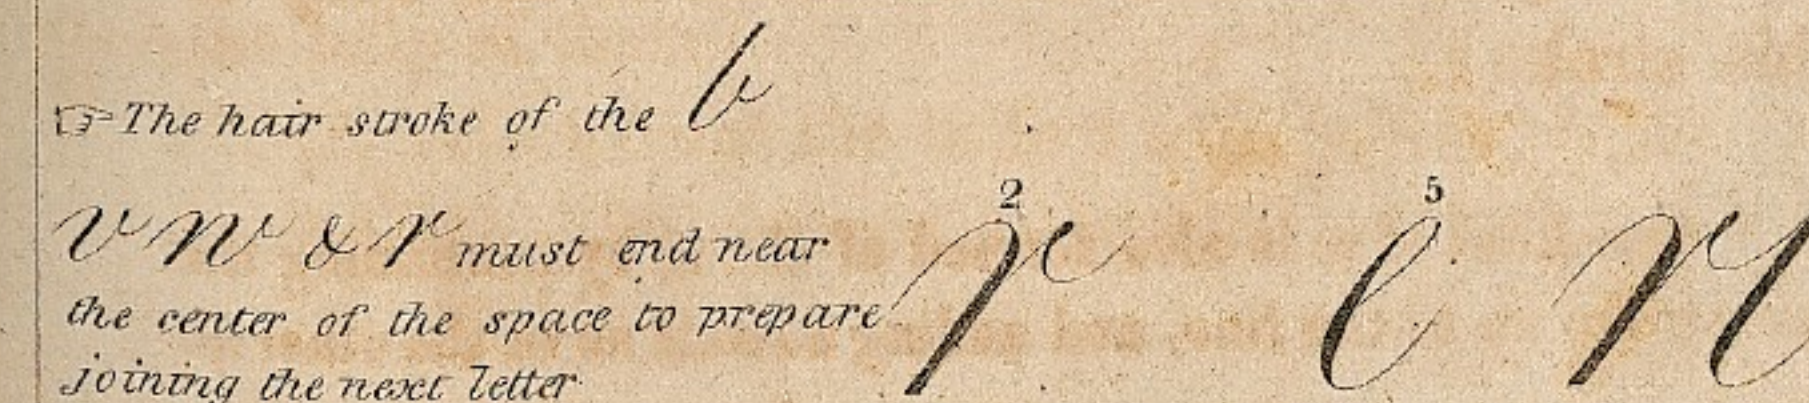 ☞ The hair stroke of the b
v w & r must end near
the center of the space to prepare
joining the next letter
2 5
r e r